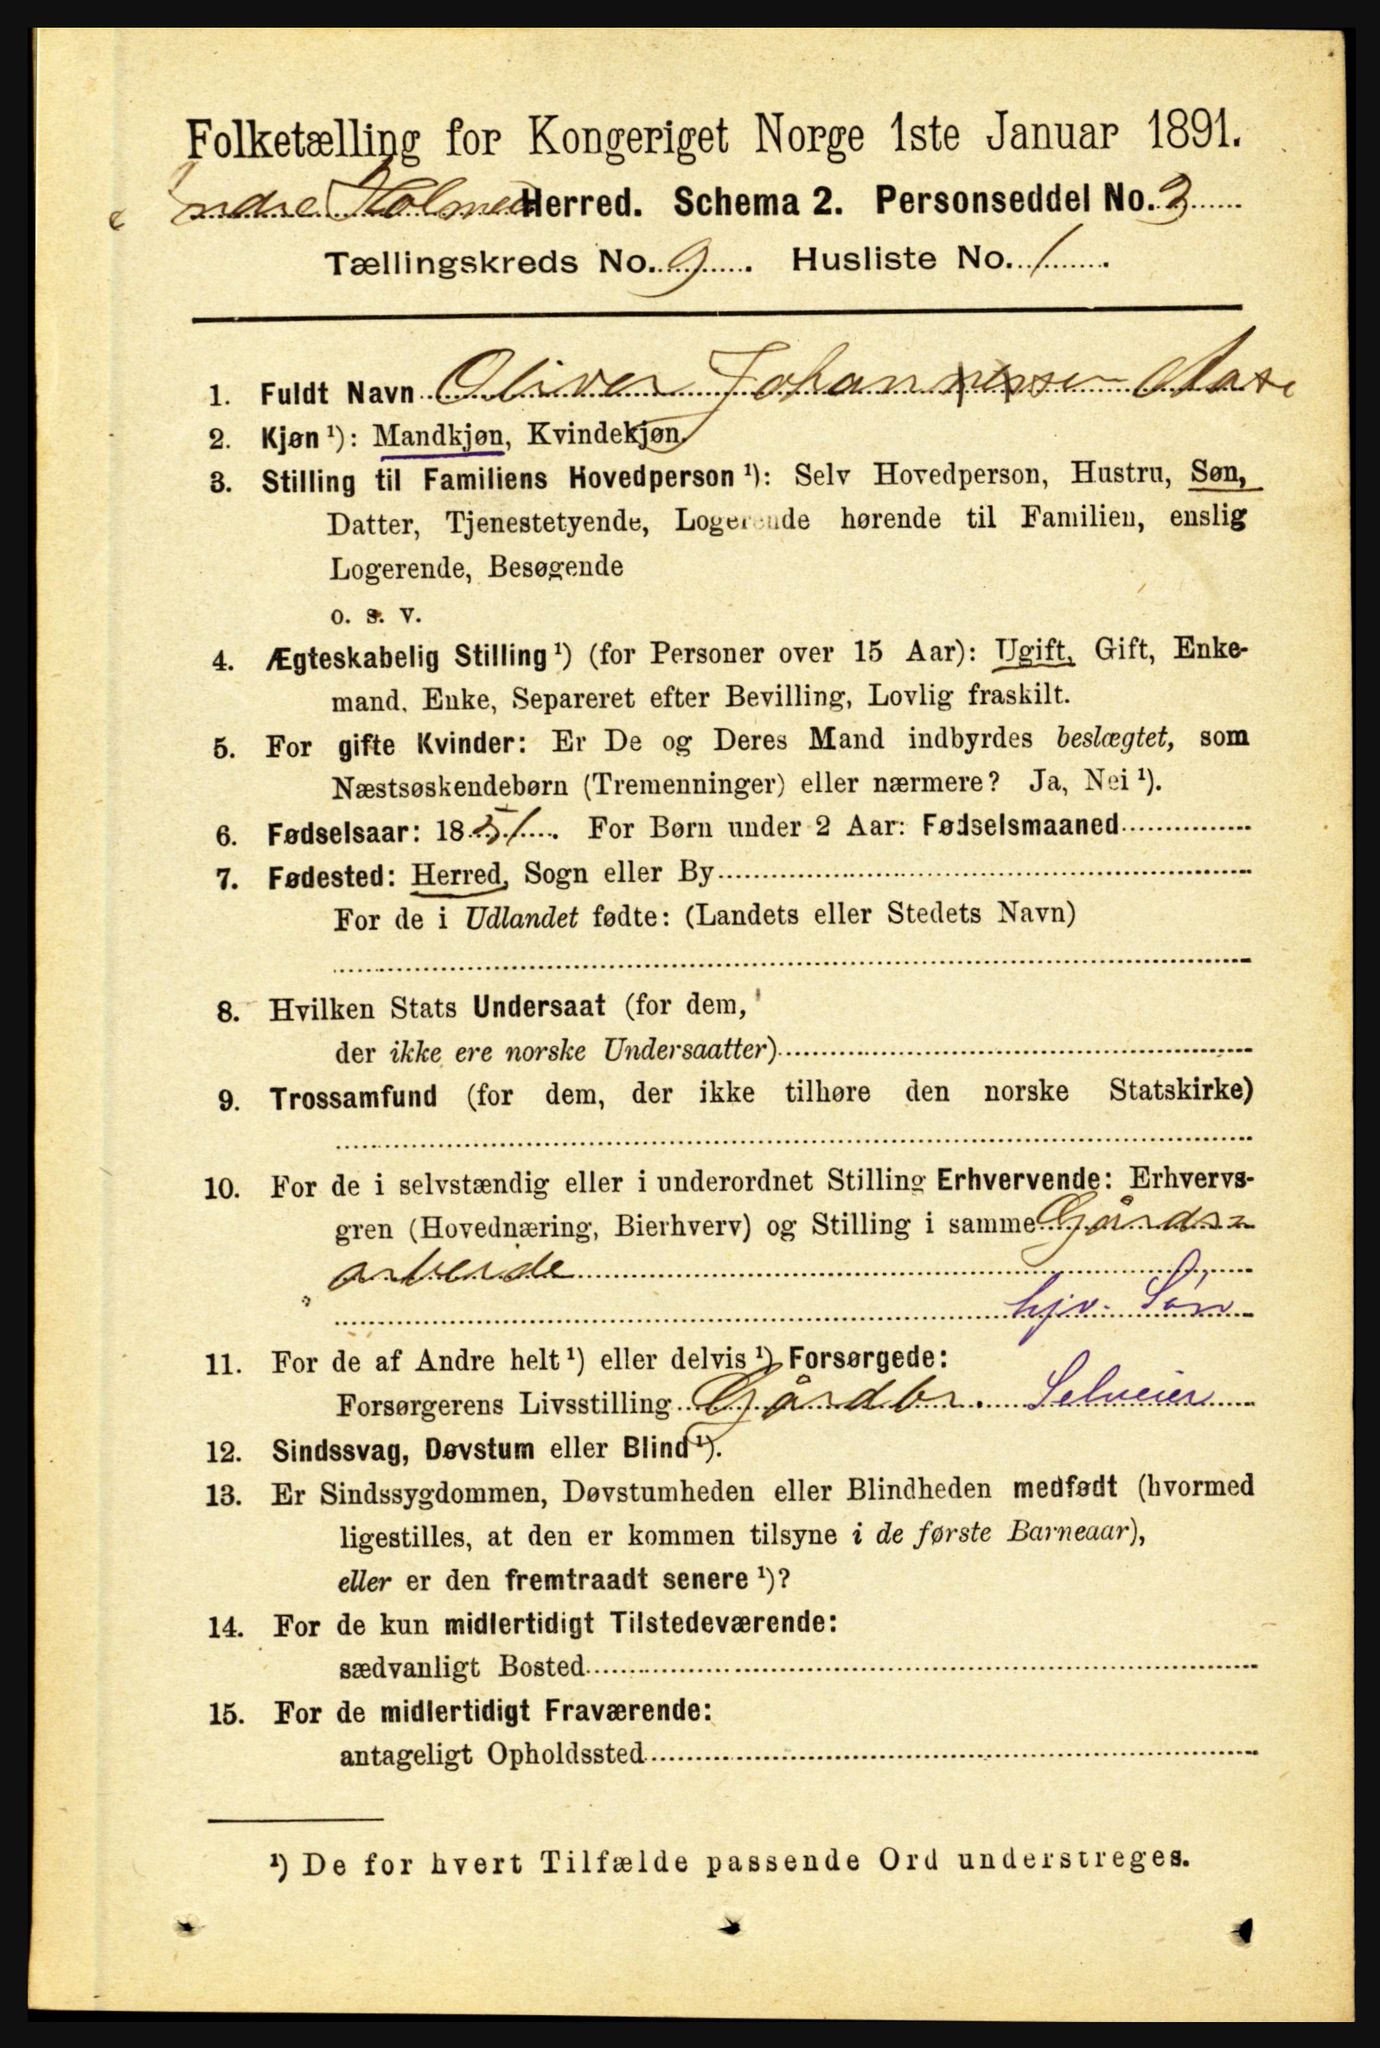 Folketælling for Kongeriget Norge 1ste Januar 1891.
Indre Holmedal Herred. Schema 2. Personseddel No. 3
Tællingskreds No. 9. Husliste No. 1.
1. Fuldt Navn Oliver Johannessen Aase
2. Kjøn ¹): Mandkjøn, Kvindekjøn.
3. Stilling til Familiens Hovedperson ¹): Selv Hovedperson, Hustru, Søn,
Datter, Tjenestetyende, Logerende hørende til Familien, enslig
Logerende, Besøgende
o. s. v.
4. Ægteskabelig Stilling ¹) (for Personer over 15 Aar): Ugift, Gift, Enke-
mand, Enke, Separeret efter Bevilling, Lovlig fraskilt.
5. For gifte Kvinder: Er De og Deres Mand indbyrdes beslægtet, som
Næstsøskendebørn (Tremenninger) eller nærmere? Ja, Nei ¹).
6. Fødselsaar: 1851. For Børn under 2 Aar: Fødselsmaaned
7. Fødested: Herred, Sogn eller By
For de i Udlandet fødte: (Landets eller Stedets Navn)
8. Hvilken Stats Undersaat (for dem,
der ikke ere norske Undersaatter)
9. Trossamfund (for dem, der ikke tilhøre den norske Statskirke)
10. For de i selvstændig eller i underordnet Stilling Erhvervende: Erhvervs-
gren (Hovednæring, Bierhverv) og Stilling i samme Gårds=
arbeide
hjv. Søn
11. For de af Andre helt ¹) eller delvis ¹) Forsørgede:
Forsørgerens Livsstilling Gårdbr. Selveier
12. Sindssvag, Døvstum eller Blind ¹).
13. Er Sindssygdommen, Døvstumheden eller Blindheden medfødt (hvormed
ligestilles, at den er kommen tilsyne i de første Barneaar),
eller er den fremtraadt senere ¹)?
14. For de kun midlertidigt Tilstedeværende:
sædvanligt Bosted
15. For de midlertidigt Fraværende:
antageligt Opholdssted
¹) De for hvert Tilfælde passende Ord understreges.